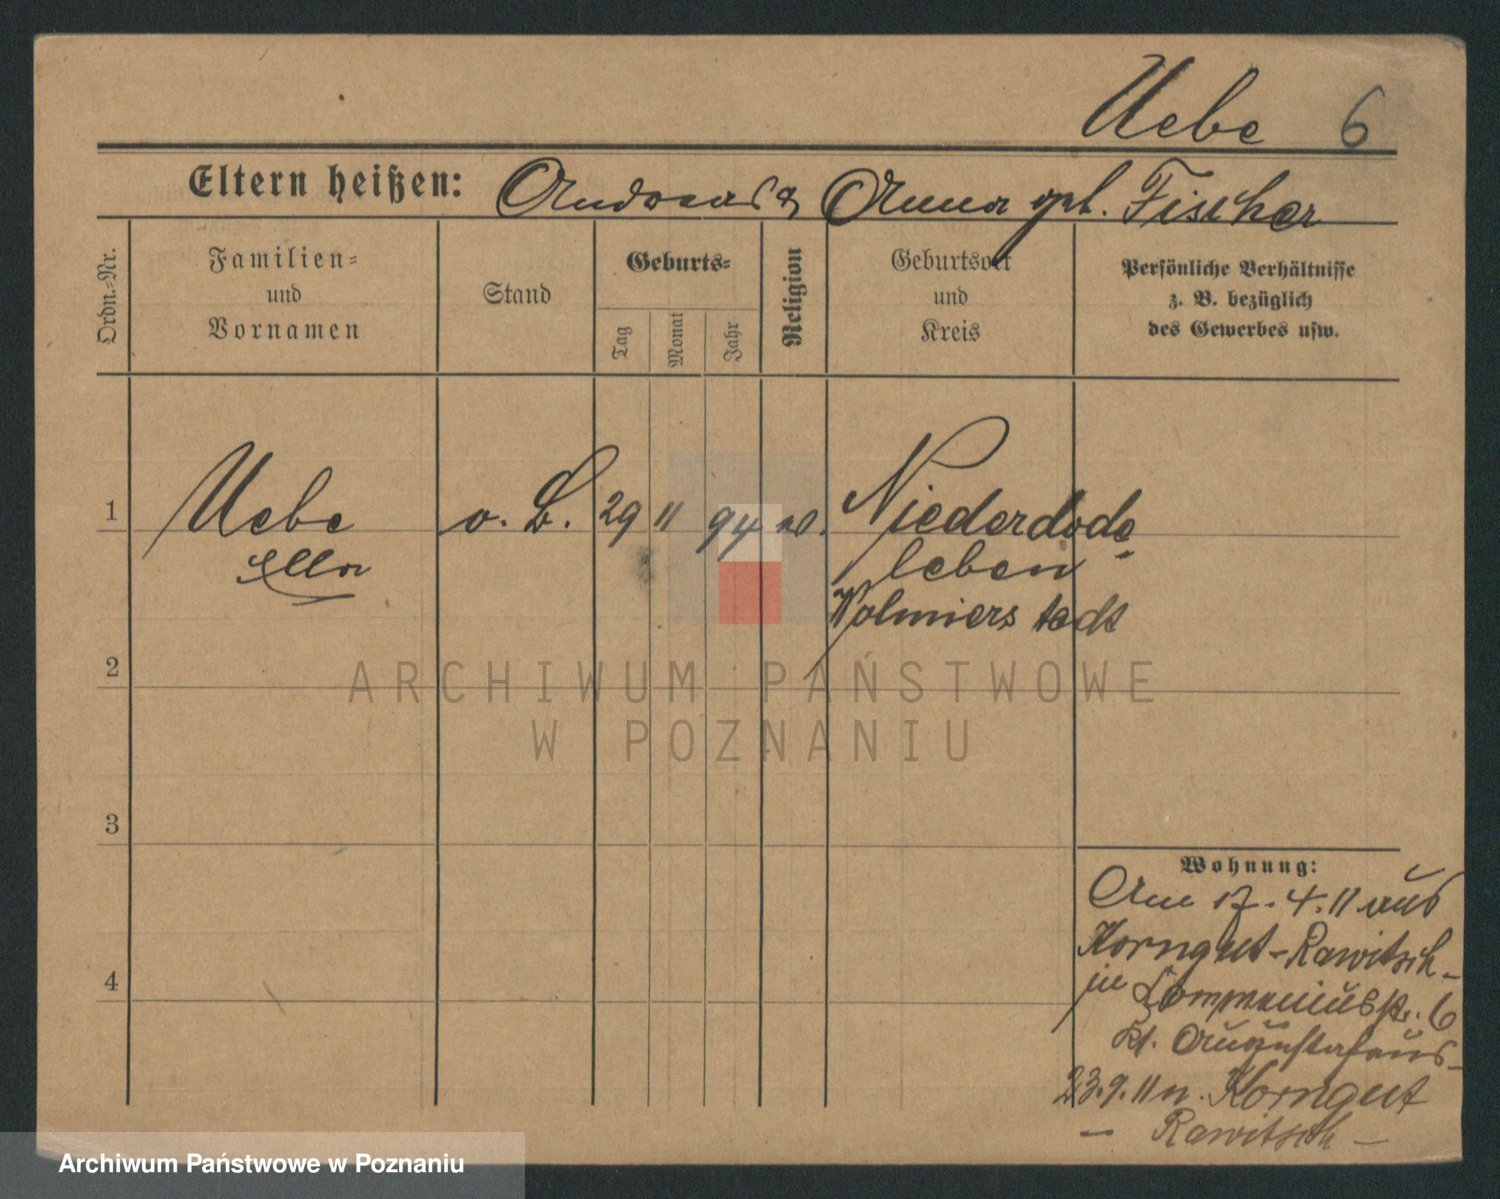 Uebe 6
Eltern heißen: Andreas & Anna geb. Fischer
Ordn.-Nr.
Familien-
und
Vornamen
Stand
Geburts-
Tag
Monat
Jahr
Religion
Geburtsort
und
Kreis
Persönliche Verhältnisse
z. B. bezüglich
des Gewerbes usw.
1 Uebe o. B. 29 11 94 Niederdode-
Ella leben
Wolmierstedt
2
3
4
Wohnung:
Am 17.4.11 aus
Korngut-Rawitsch-
in 6
Kl. Augustahaus-
23.9.11 n. Korngut
- Rawitsch -
ARCHIWUM PAŃSTWOWE
W POZNANIU
Archiwum Państwowe w Poznaniu